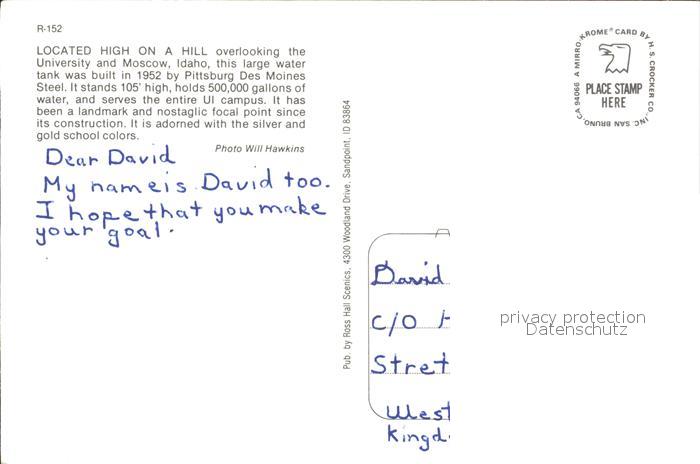 R-152
LOCATED HIGH ON A HILL overlooking the
University and Moscow, Idaho, this large water
tank was built in 1952 by Pittsburg Des Moines
Steel. It stands 105' high, holds 500,000 gallons of
water, and serves the entire UI campus. It has
been a landmark and nostaglic focal point since
its construction. It is adorned with the silver and
gold school colors.
Photo Will Hawkins
Dear David
My name is David too.
I hope that you make
your goal.
Pub. by Ross Hall Scenics, 4300 Woodland Drive, Sandpoint, ID 83864
A MIRRO-KROME® CARD BY H. S. CROCKER CO., INC. SAN BRUNO, CA 94066
PLACE STAMP
HERE
David
C/O
Stret
West
Kingd
privacy protection
Datenschutz